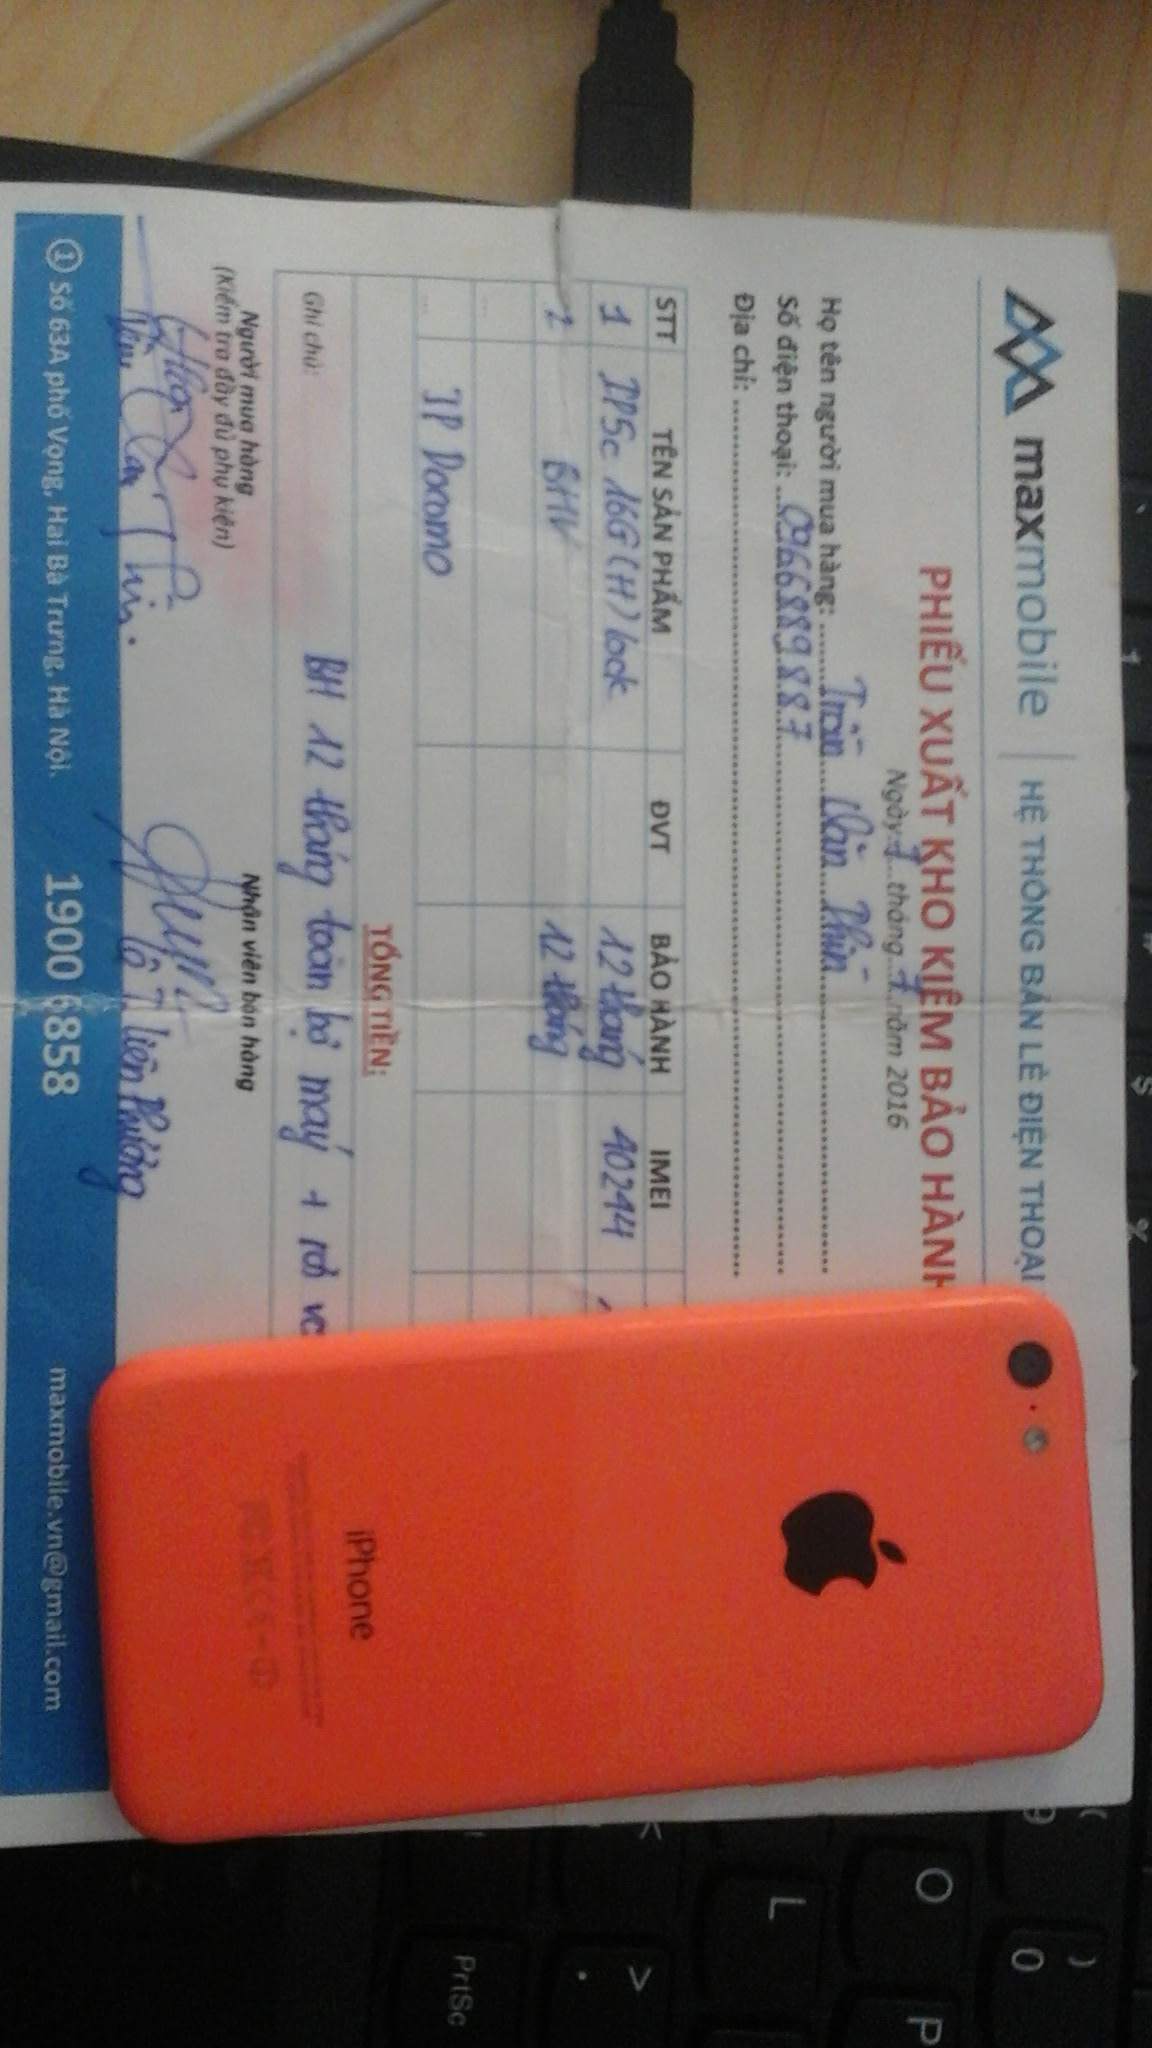 maxmobile | HỆ THỐNG BÁN LẺ ĐIỆN THOẠI
PHIẾU XUẤT KHO KIÊM BẢO HÀNH
Ngày 1 tháng 7 năm 2016
Họ tên người mua hàng: Trần Văn Thìn
Số điện thoại: 0966889887
Địa chỉ:
STT TÊN SẢN PHẨM ĐVT BẢO HÀNH IMEI
1 IP5c 16G (H) lock 12 tháng 40244
2 BHV 12 tháng
... 
... JP Docomo
TỔNG TIỀN:
Ghi chú: BH 12 tháng toàn bộ máy + rơi
Người mua hàng Nhân viên bán hàng
(Kiểm tra đầy đủ phụ kiện)
Văn Thìn.
① Số 63A phố Vọng, Hai Bà Trưng, Hà Nội. 1900 6858 maxmobile.vn@gmail.com
iPhone
1
$
%
9 (
0 )
O
P
L
>
.
PrtSc